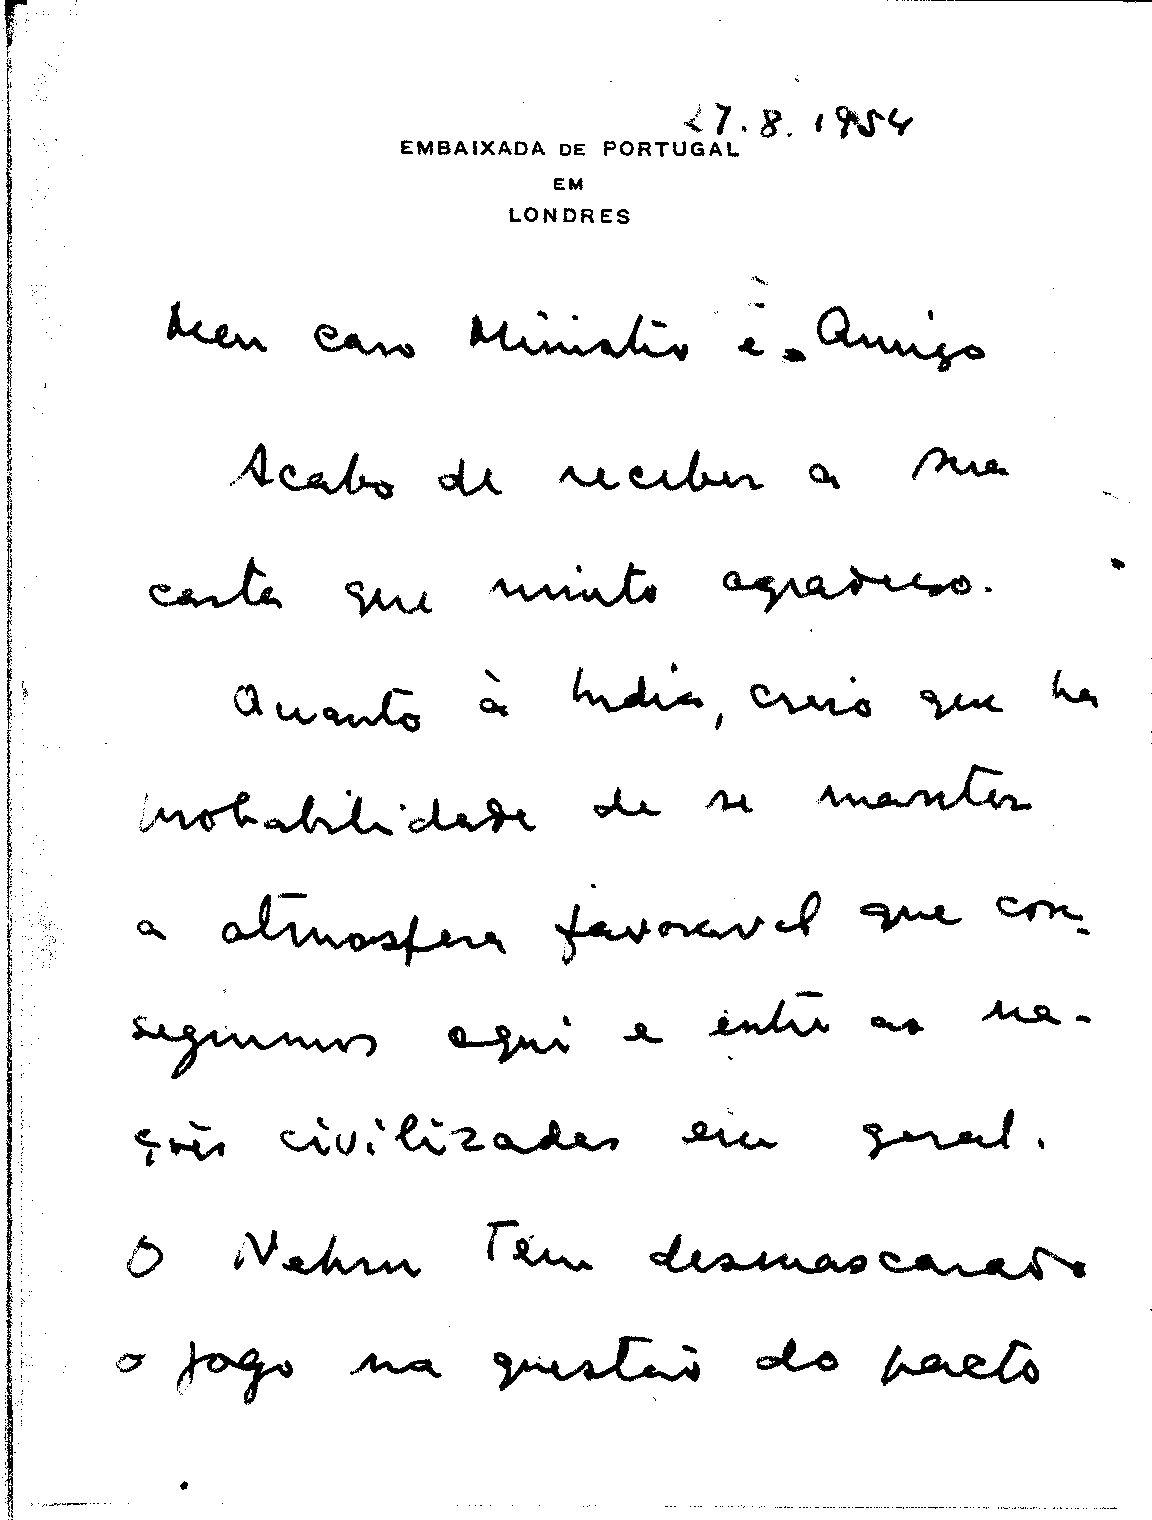 27.8.1954
EMBAIXADA DE PORTUGAL
EM
LONDRES
Meu caro Ministro e Amigo
Acabo de receber a sua
carta que muito agradeço.
Quanto à India, creio que ha
probabilidade de se manter
a atmosfera favoravel que con-
seguimos aqui e entre as na-
ções civilizadas em geral.
O Nehru tem desmascarado
o jogo na questão do pacto